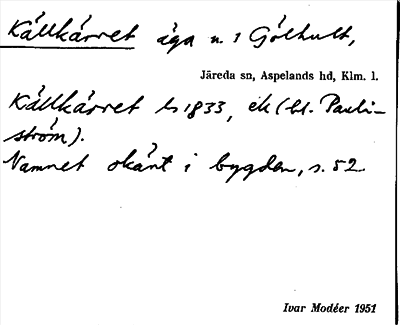 Källkärret äga u. 1 Gölhult,
Järeda sn, Aspelands hd, Klm. l.
Källkärret ls 1833, ek (bl. Pauli-
ström).
Namnet okänt i bygden, s. 52
Ivar Modéer 1951